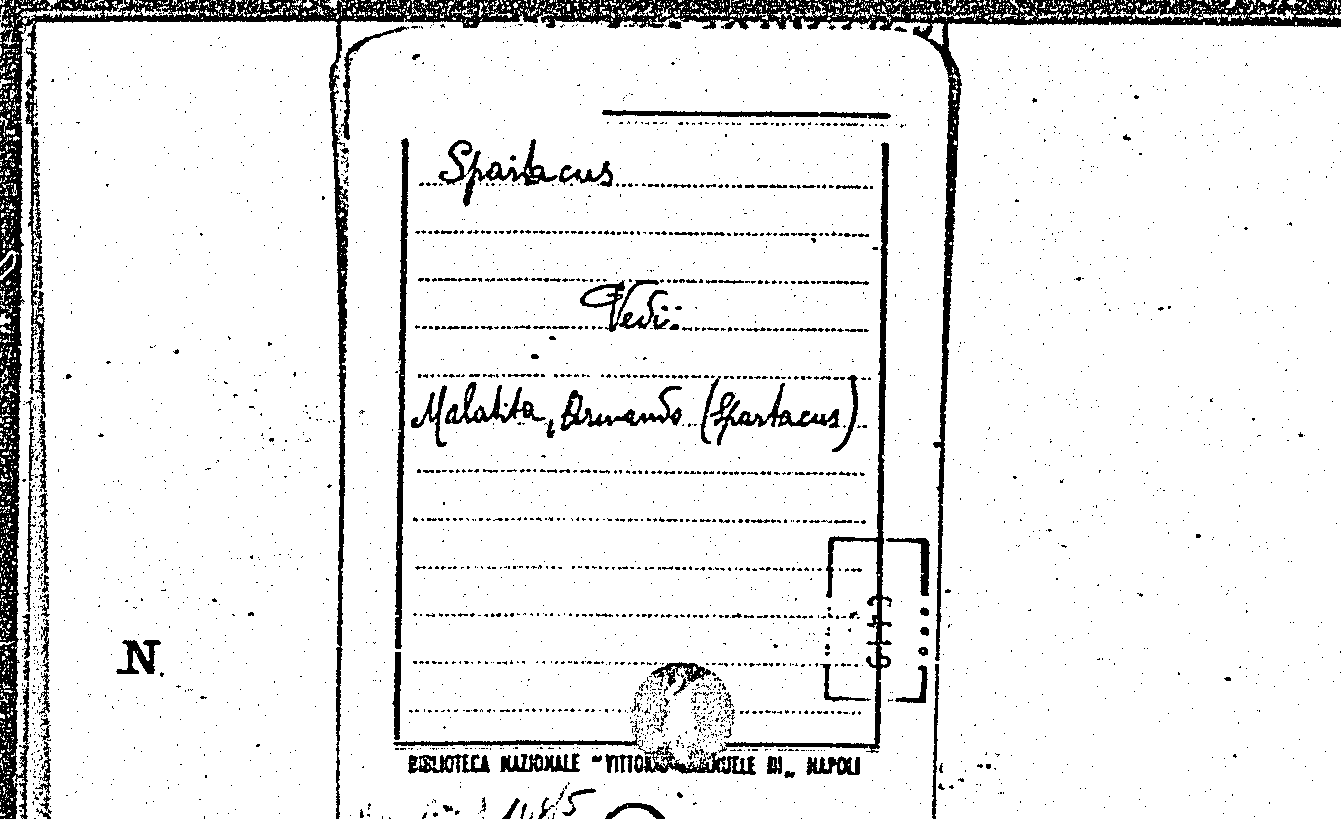 Spartacus
Vedi:
Malatita, Armando (Spartacus)
N
BIBLIOTECA NAZIONALE "VITTORIO EMANUELE III„ NAPOLI